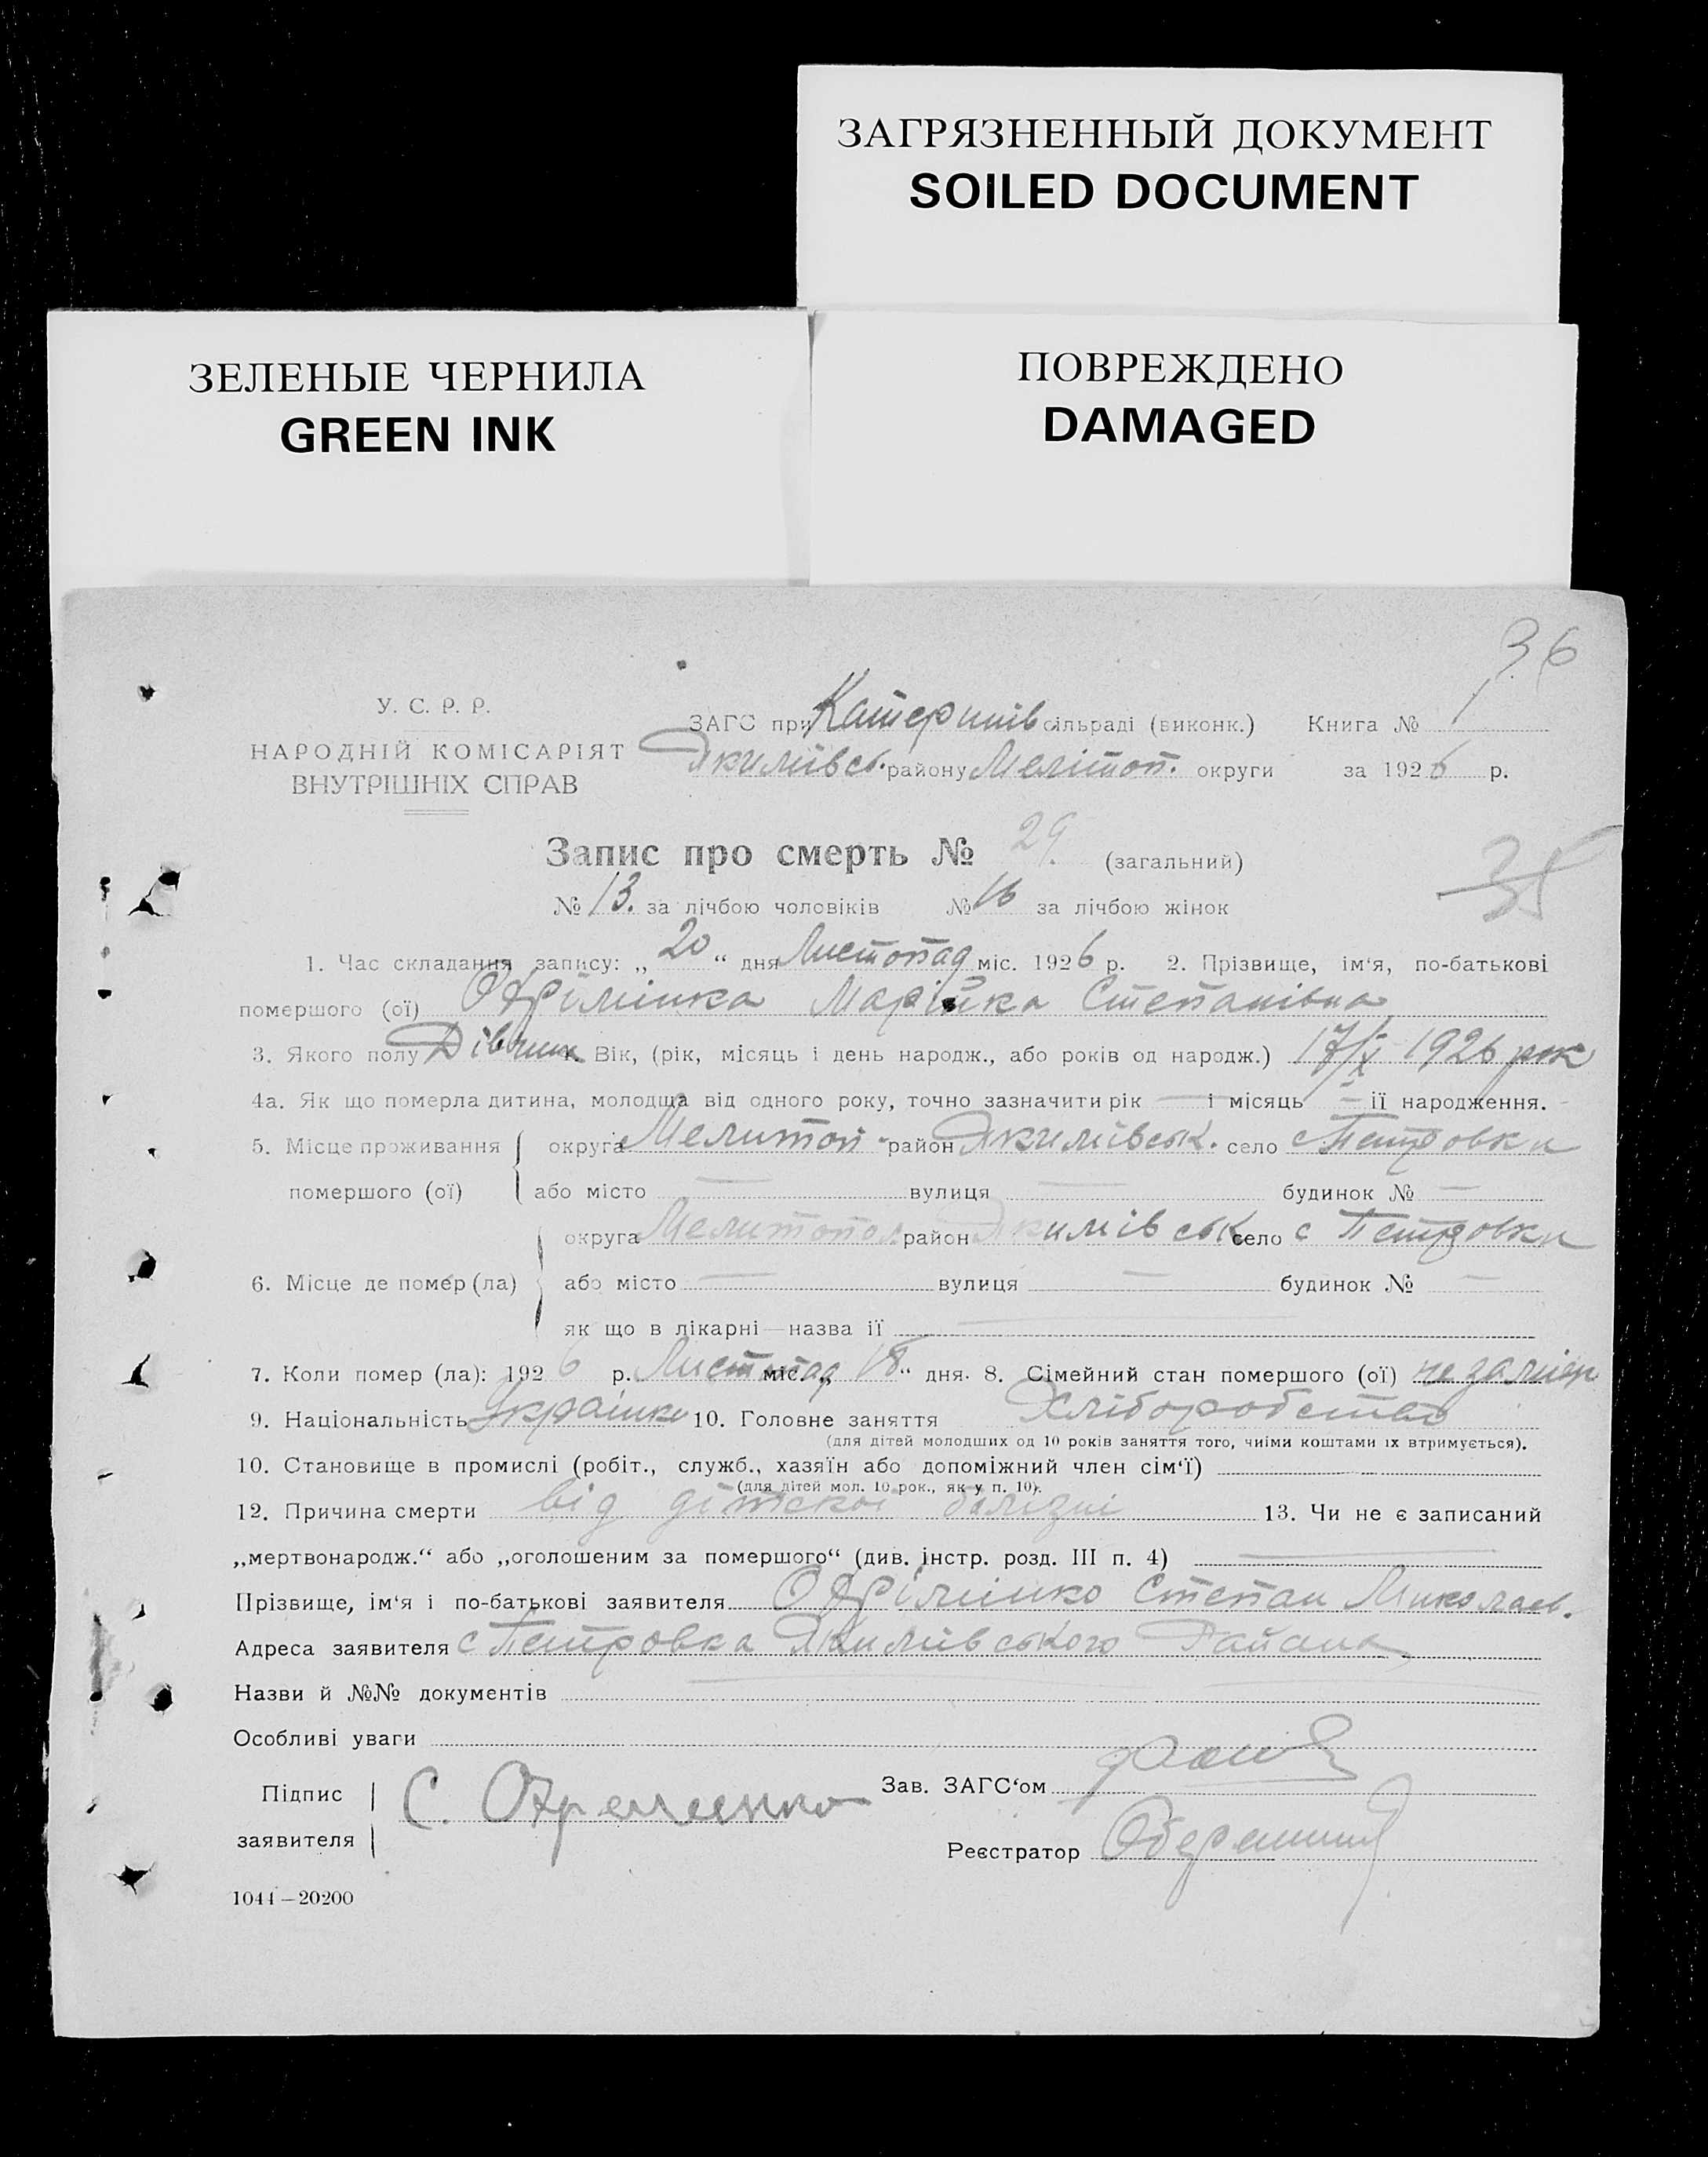 ЗАГРЯЗНЕННЫЙ ДОКУМЕНТ
SOILED DOCUMENT
ЗЕЛЕНЫЕ ЧЕРНИЛА
GREEN INK
ПОВРЕЖДЕНО
DAMAGED
36
У. С. Р. Р.
НАРОДНІЙ КОМІСАРІЯТ
ВНУТРІШНІХ СПРАВ
ЗАГС при сільраді (виконк.) Книга № 1
Якимівськ. району Мелітоп. округи за 1926 р.
Запис про смерть № 29. (загальний)
35
№ 13. за лічбою чоловіків № 16 за лічбою жінок
1. Час складання запису: „20“ дня Листопад міс. 1926 р. 2. Прізвище, ім'я, по-батькові
помершого (ої) Марійка Степанівна
3. Якого полу Дівчин 4. Вік, (рік, місяць і день народж., або років од народж.) 17/X 1926 рок
4а. Як що померла дитина, молодща від одного року, точно зазначити рік — і місяць — її народження.
5. Місце проживання помершого (ої) округа Мелитоп район Якимівськ. село с Петровка
або місто — вулиця — будинок № —
6. Місце де помер (ла) округа Мелитопол. район Якимівськ село с Петровка
або місто — вулиця — будинок № —
як що в лікарні—назва її —
7. Коли помер (ла): 1926 р. Листопад міс. „18“ дня. 8. Сімейний стан помершого (ої)
9. Національність Украінка 10. Головне заняття Хліборобство
(для дітей молодших од 10 років заняття того, чиїми коштами їх втримується).
10. Становище в промислі (робіт., служб., хазяїн або допоміжний член сім'ї)
(для дітей мол. 10 рок., як у п. 10).
12. Причина смерти від дітскоі болізні 13. Чи не є записаний
„мертвонародж.“ або „оголошеним за помершого“ (див. інстр. розд. III п. 4) —
Прізвище, ім'я і по-батькові заявителя Степан Миколаєв.
Адреса заявителя с Петровка Якимівського Района
Назви й №№ документів —
Особливі уваги
Підпис заявителя С.
Зав. ЗАГС'ом
Реєстратор
1044—20200